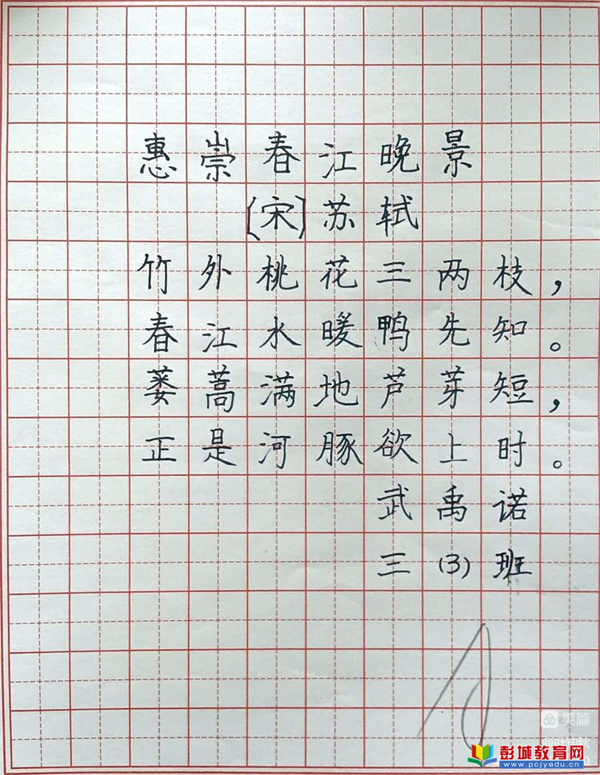 惠崇春江晚景
[宋]苏轼
竹外桃花三两枝，
春江水暖鸭先知。
蒌蒿满地芦芽短，
正是河豚欲上时。
武禹诺
三(3)班
美篇
彭城教育网
www.pcjyedu.cn